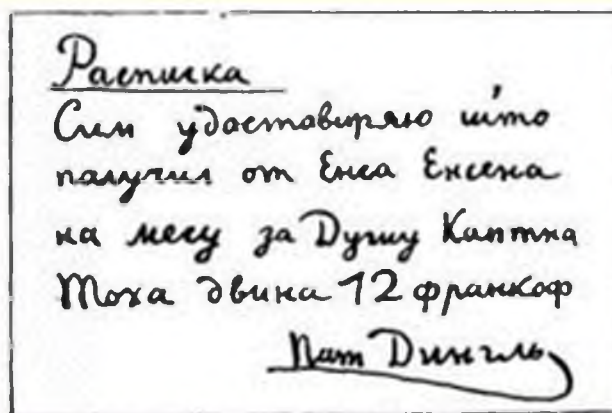 Расписка
Сим удоставиряю што
палучил от Енса Енсена
на месу за Душу Каптна
Тоха двина 12 франкоф
Пат Дингль